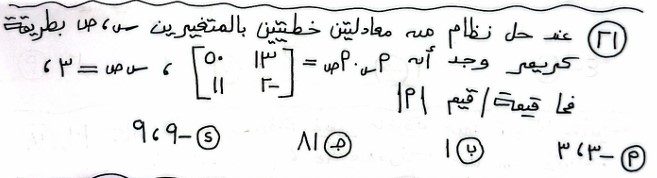 ٢١ عند حل نظام من معادلتين خطيتين بالمتغيرين س، ص بطريقة
كريمر وجد أن م س . م ص = [١٣ ٥٠ / -٢ ١١] ، س ص = ٣ ،
فما قيمة / قيم |م|
م -٣، ٣ ب ١ ج ٨١ د -٩، ٩